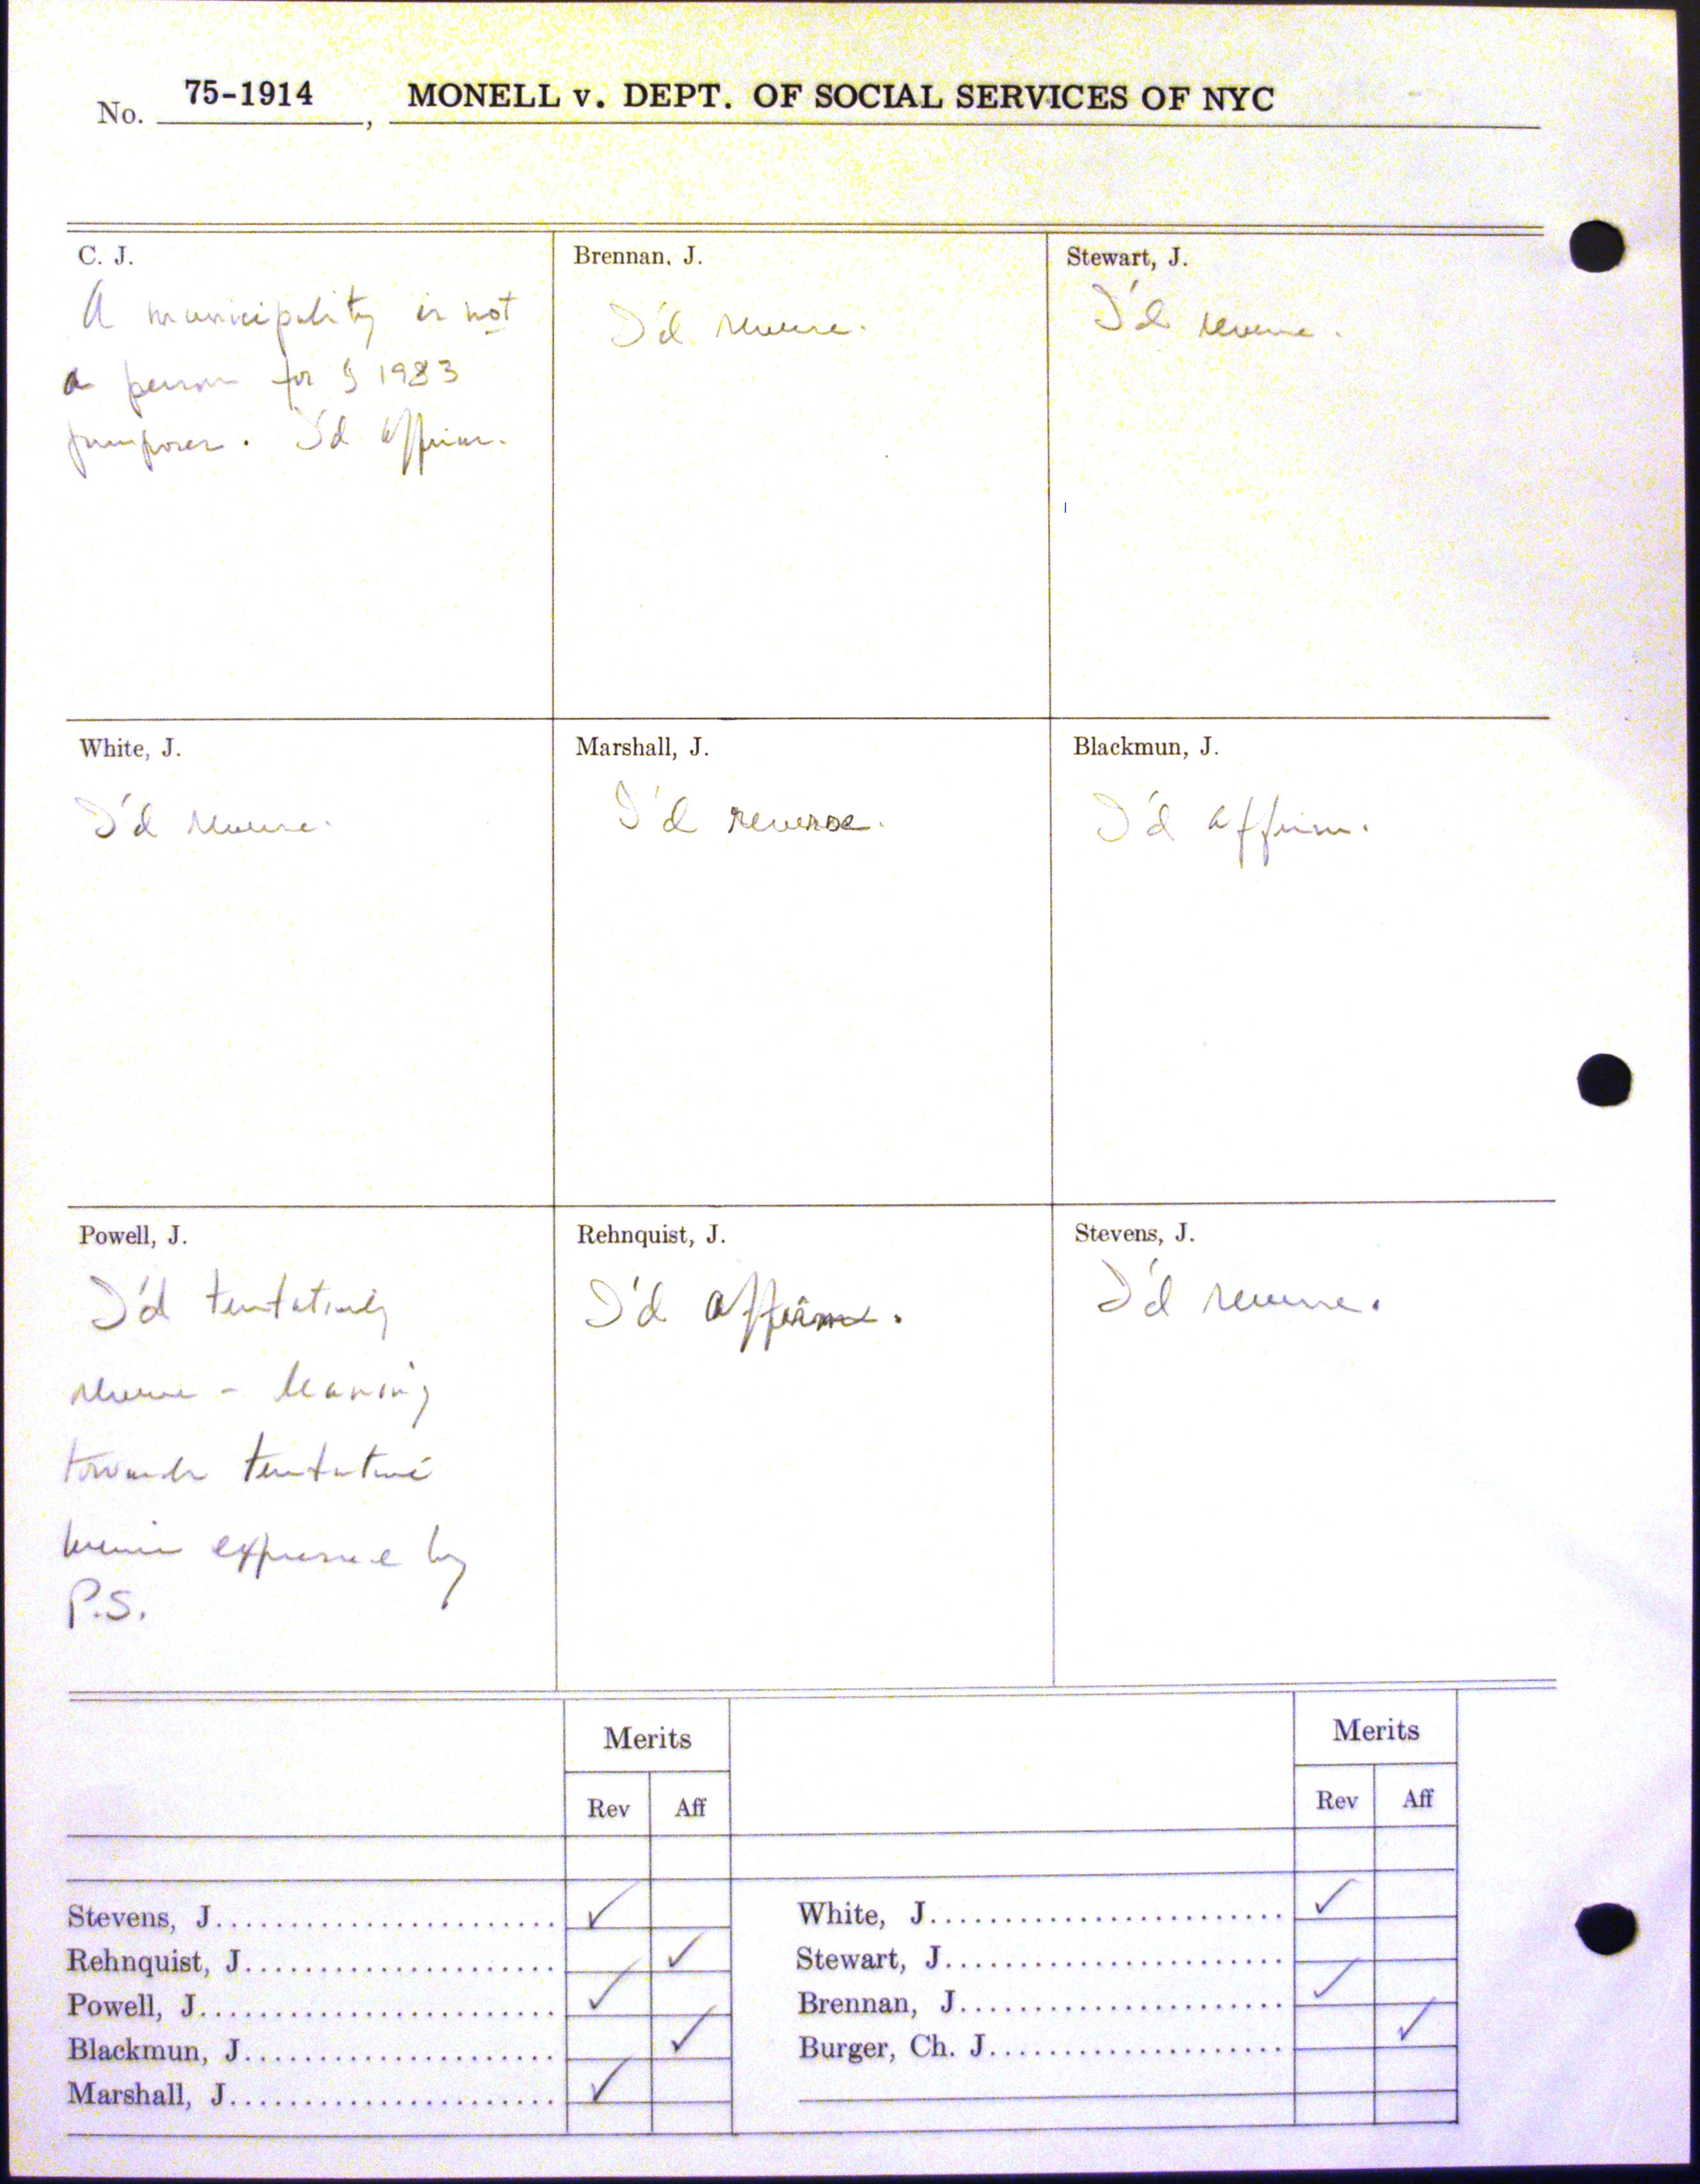 No. 75-1914, MONELL v. DEPT. OF SOCIAL SERVICES OF NYC
C. J.
A municipality is not
a person for § 1983
purposes. I'd affirm.
Brennan, J.
I'd reverse.
Stewart, J.
I'd reverse.
White, J.
I'd reverse.
Marshall, J.
I'd reverse.
Blackmun, J.
I'd affirm.
Powell, J.
I'd tentatively
reverse - leaning
towards tentative
by
P.S.
Rehnquist, J.
I'd affirm.
Stevens, J.
I'd reverse.
Merits
Rev Aff
Stevens, J. ✓
Rehnquist, J. ✓
Powell, J. ✓
Blackmun, J. ✓
Marshall, J. ✓
Merits
Rev Aff
White, J. ✓
Stewart, J.
Brennan, J. ✓
Burger, Ch. J. ✓